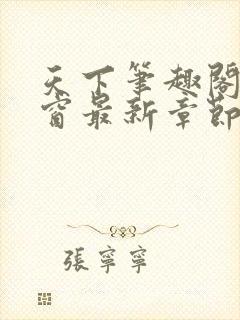 天下筆趣閣
窗最新章節
張寧寧